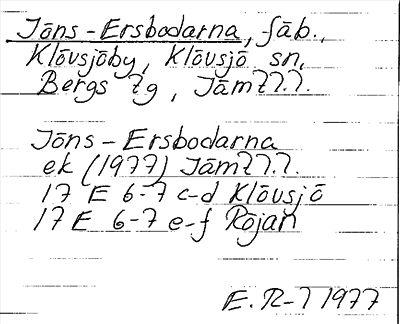 Jöns-Ersbodarna, fäb.,
Klövsjöby, Klövsjö sn,
Bergs tg, Jämtl.
Jöns-Ersbodarna
ek (1977) Jämtl.
17 E 6-7 c-d Klövsjö
17 E 6-7 e-f Röjan
E. R-l 1977